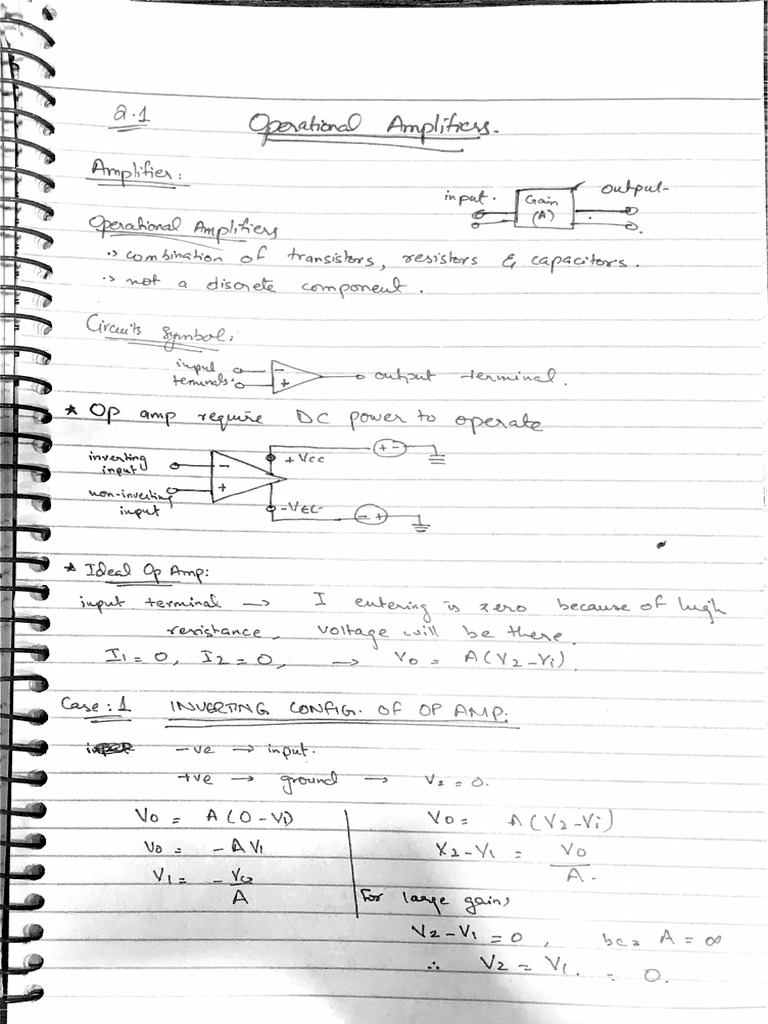 2.1 Operational Amplifiers.
Amplifier:
input. Gain (A) output
Operational Amplifiers
·> combination of transistors, resistors & capacitors.
·> not a discrete component.
Circuits Symbol:
input terminals. - + output terminal.
* Op amp require DC power to operate
inverting input - +Vcc + -
non-inverting input + -VEC - +
* Ideal Op Amp:
input terminal → I entering is zero because of high
resistance, voltage will be there.
I1 = 0, I2 = 0, → Vo = A(V2-Vi).
Case: 1 INVERTING CONFIG. OF OP AMP:
-ve → input.
+ve → ground → V2 = 0.
Vo = A(0-Vi)
Vo = -AV1
V1 = -Vo/A
Vo = A(V2-Vi)
V2-V1 = Vo/A.
For large gain,
V2-V1 = 0, bcz A = ∞
∴ V2 = V1. = 0.